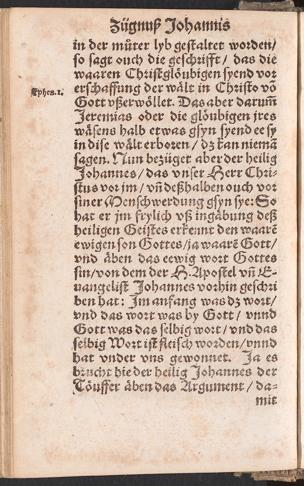 Zügnuß Johannis
in der můter lyb gestaltet worden/
so sagt ouch die geschrifft/ das die
waaren Christglöubigen syend vor
Ephes.1. erschaffung der wält in Christo võ
Gott vßerwöllet. Das aber darum̃
Jeremias oder die glöubigen jres
wäsens halb etwas gsyn syend ee sy
in dise wält erboren/ dz kan niemã
sagen. Nun bezüget aber der heilig
Johannes/ das vnser Herr Chri-
stus vor jm/ vñ deßhalben ouch vor
siner Menschwerdung gsyn sye: So
hat er jm frylich vß ingäbung deß
heiligen Geistes erkennt den waarẽ
ewigen son Gottes/ ja waarẽ Gott/
vnd äben das eewig wort Gottes
sin/ von dem der H. Apostel vñ E-
uangelist Johannes vorhin geschri
ben hat: Im anfang was dz wort/
vnd das wort was by Gott/ vnnd
Gott was das selbig wort/ vnd das
selbig Wort ist fleisch worden/ vnnd
hat vnder vns gewonnet. Ja es
brucht hie der heilig Johannes der
Töuffer äben das Argument/ da-
mit